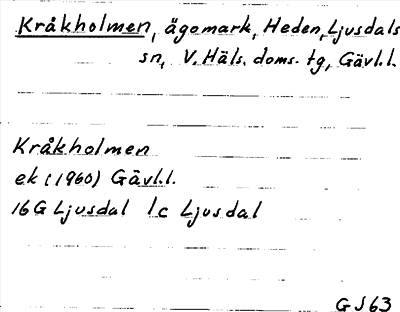 Kråkholmen, ägomark, Heden, Ljusdals
sn, V. Häls. doms. tg, Gävl.l.
Kråkholmen
ek (1960) Gävl.l.
16G Ljusdal 1c Ljusdal
GJ63